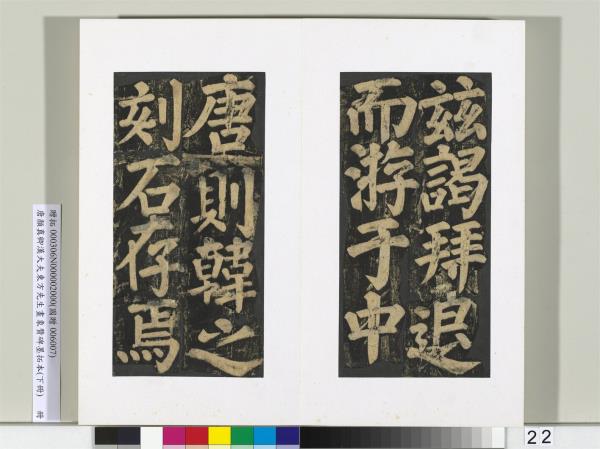 茲謁拜退
而游于中
唐則韓之
刻石存焉
贈拓 000306N000002000(國贈 006007)
唐顏真卿漢大夫東方先生畫象贊碑墨拓本(下冊) 冊
22